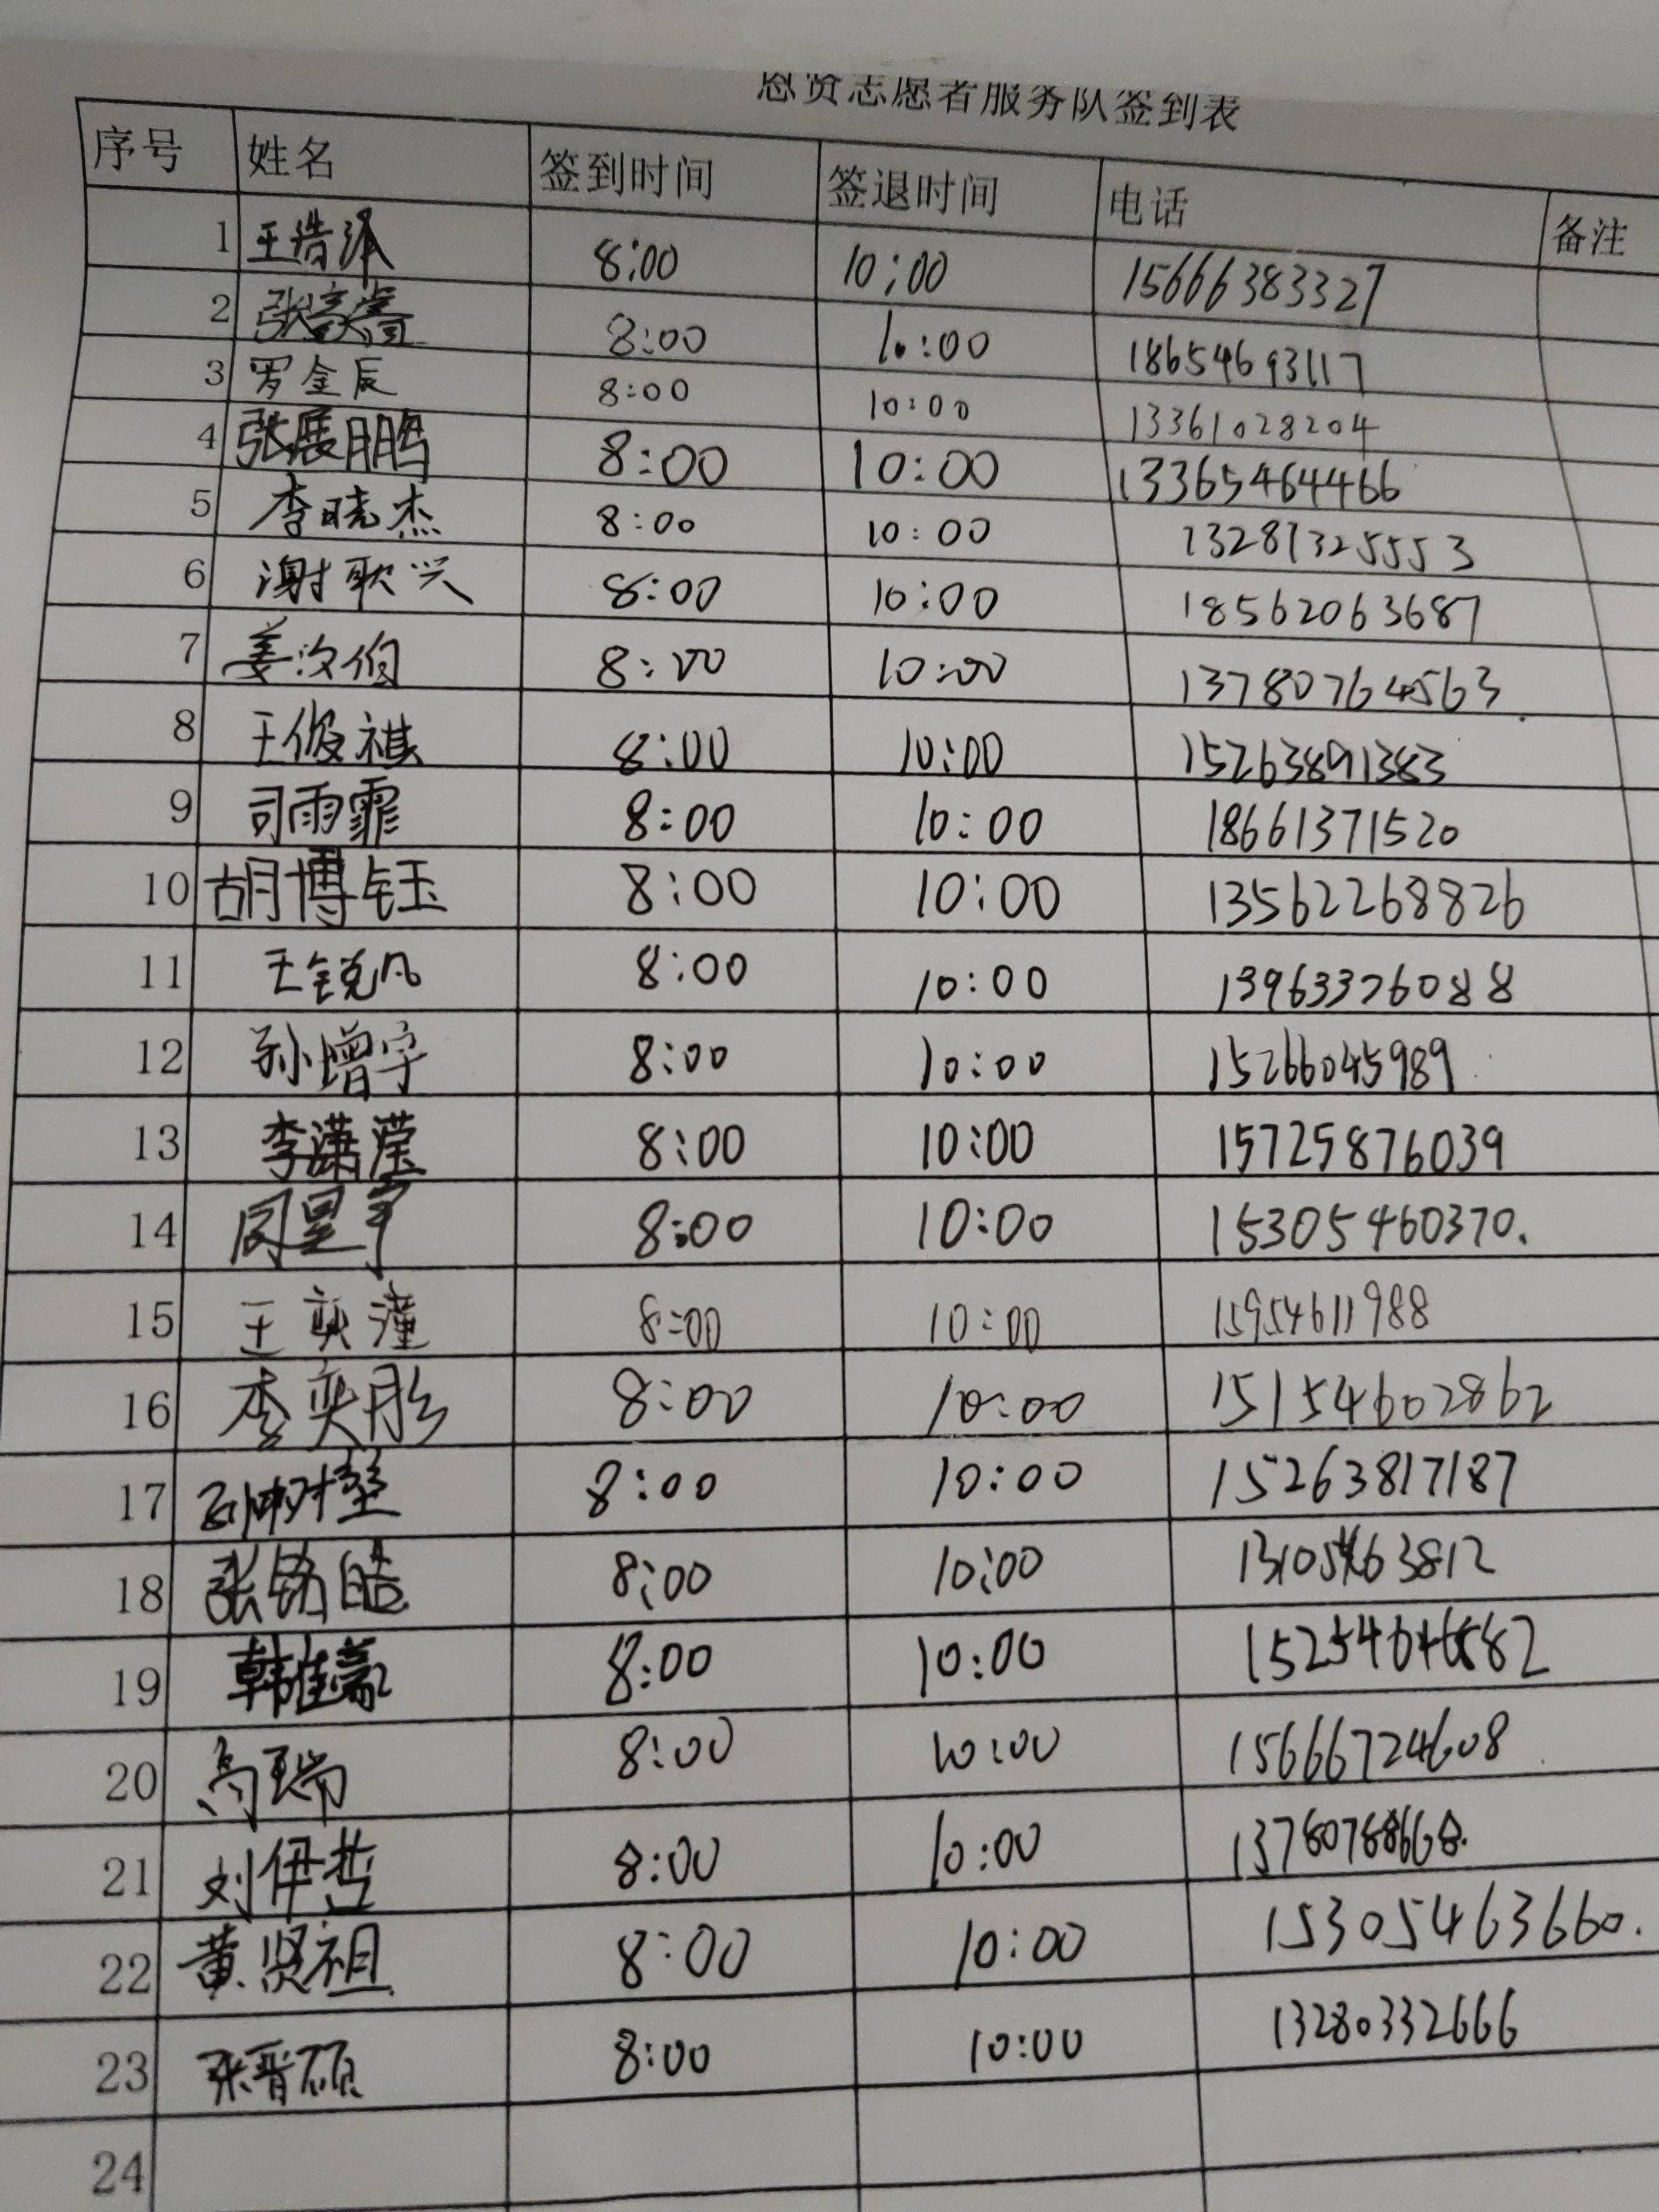 志愿者服务队签到表
序号 姓名 签到时间 签退时间 电话 备注
1 王浩泽 8:00 10:00 15666383327
2 张 8:00 10:00 18654693117
3 罗金辰 8:00 10:00 13361028204
4 张展鹏 8:00 10:00 13365464466
5 李晓杰 8:00 10:00 13281325553
6 谢耿兴 8:00 10:00 18562063687
7 姜汶伯 8:00 10:00 13780764563
8 王俊祺 8:00 10:00 15263891383
9 司雨霏 8:00 10:00 18661371520
10 胡博钰 8:00 10:00 13562268826
11 王锐凡 8:00 10:00 13963376088
12 孙增宇 8:00 10:00 15266045989
13 李潇滢 8:00 10:00 15725876039
14 周昱宇 8:00 10:00 15305460370.
15 王奕潼 8:00 10:00 15954611988
16 李奕彤 8:00 10:00 15154602862
17 8:00 10:00 15263817187
18 张铭皓 8:00 10:00
19 韩 8:00 10:00
20 高瑞 8:00 10:00 15666724608
21 刘伊哲 8:00 10:00 13780788668.
22 黄贤祖 8:00 10:00 15305463660.
23 张晋硕 8:00 10:00 13280332666
24